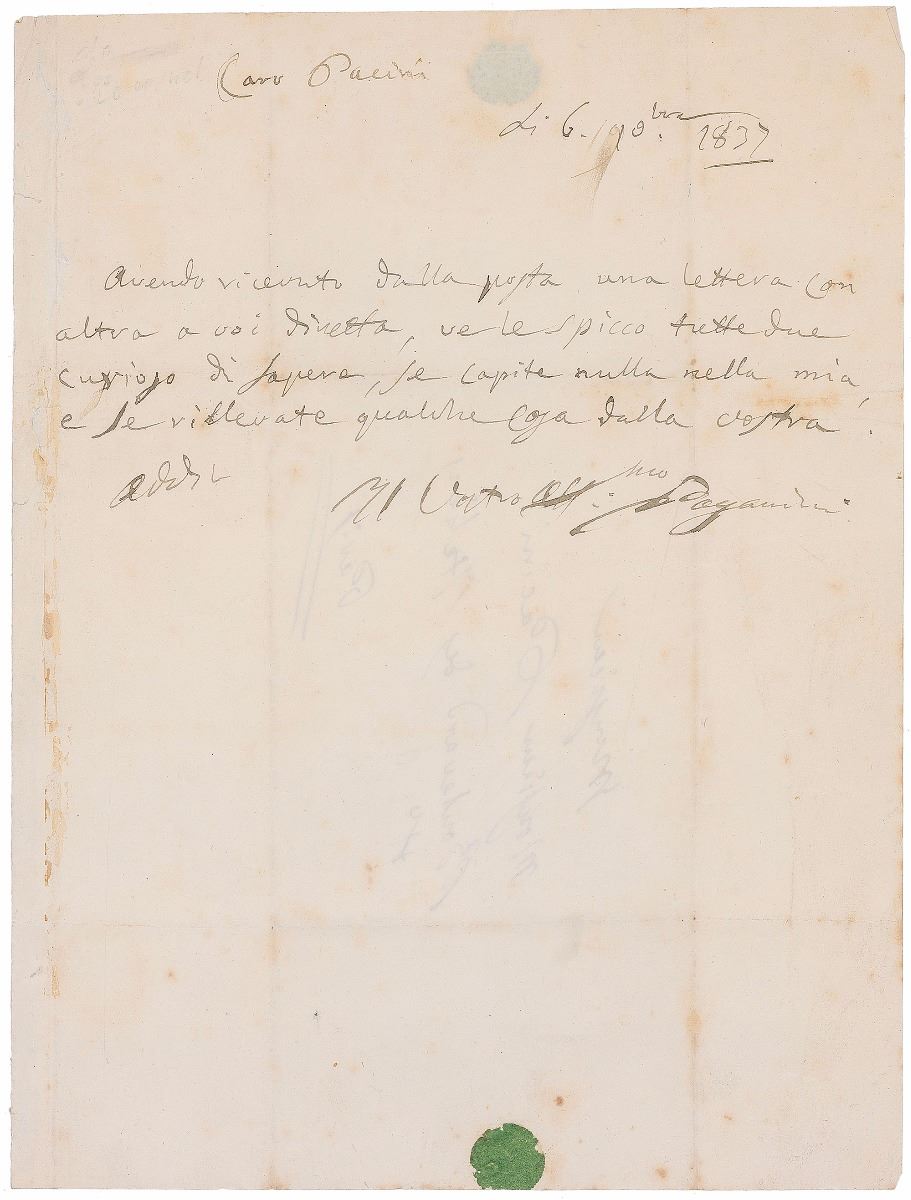 Caro Pacini
li 6. 9bre 1837
Avendo ricevuto dalla posta una lettera con
altra a voi diretta, ve le spicco tutte due
curioso di sapere, se capite nulla nella mia
e se rillevate qualche cosa dalla vostra.
addio
Il Vostro aff.mo Paganini